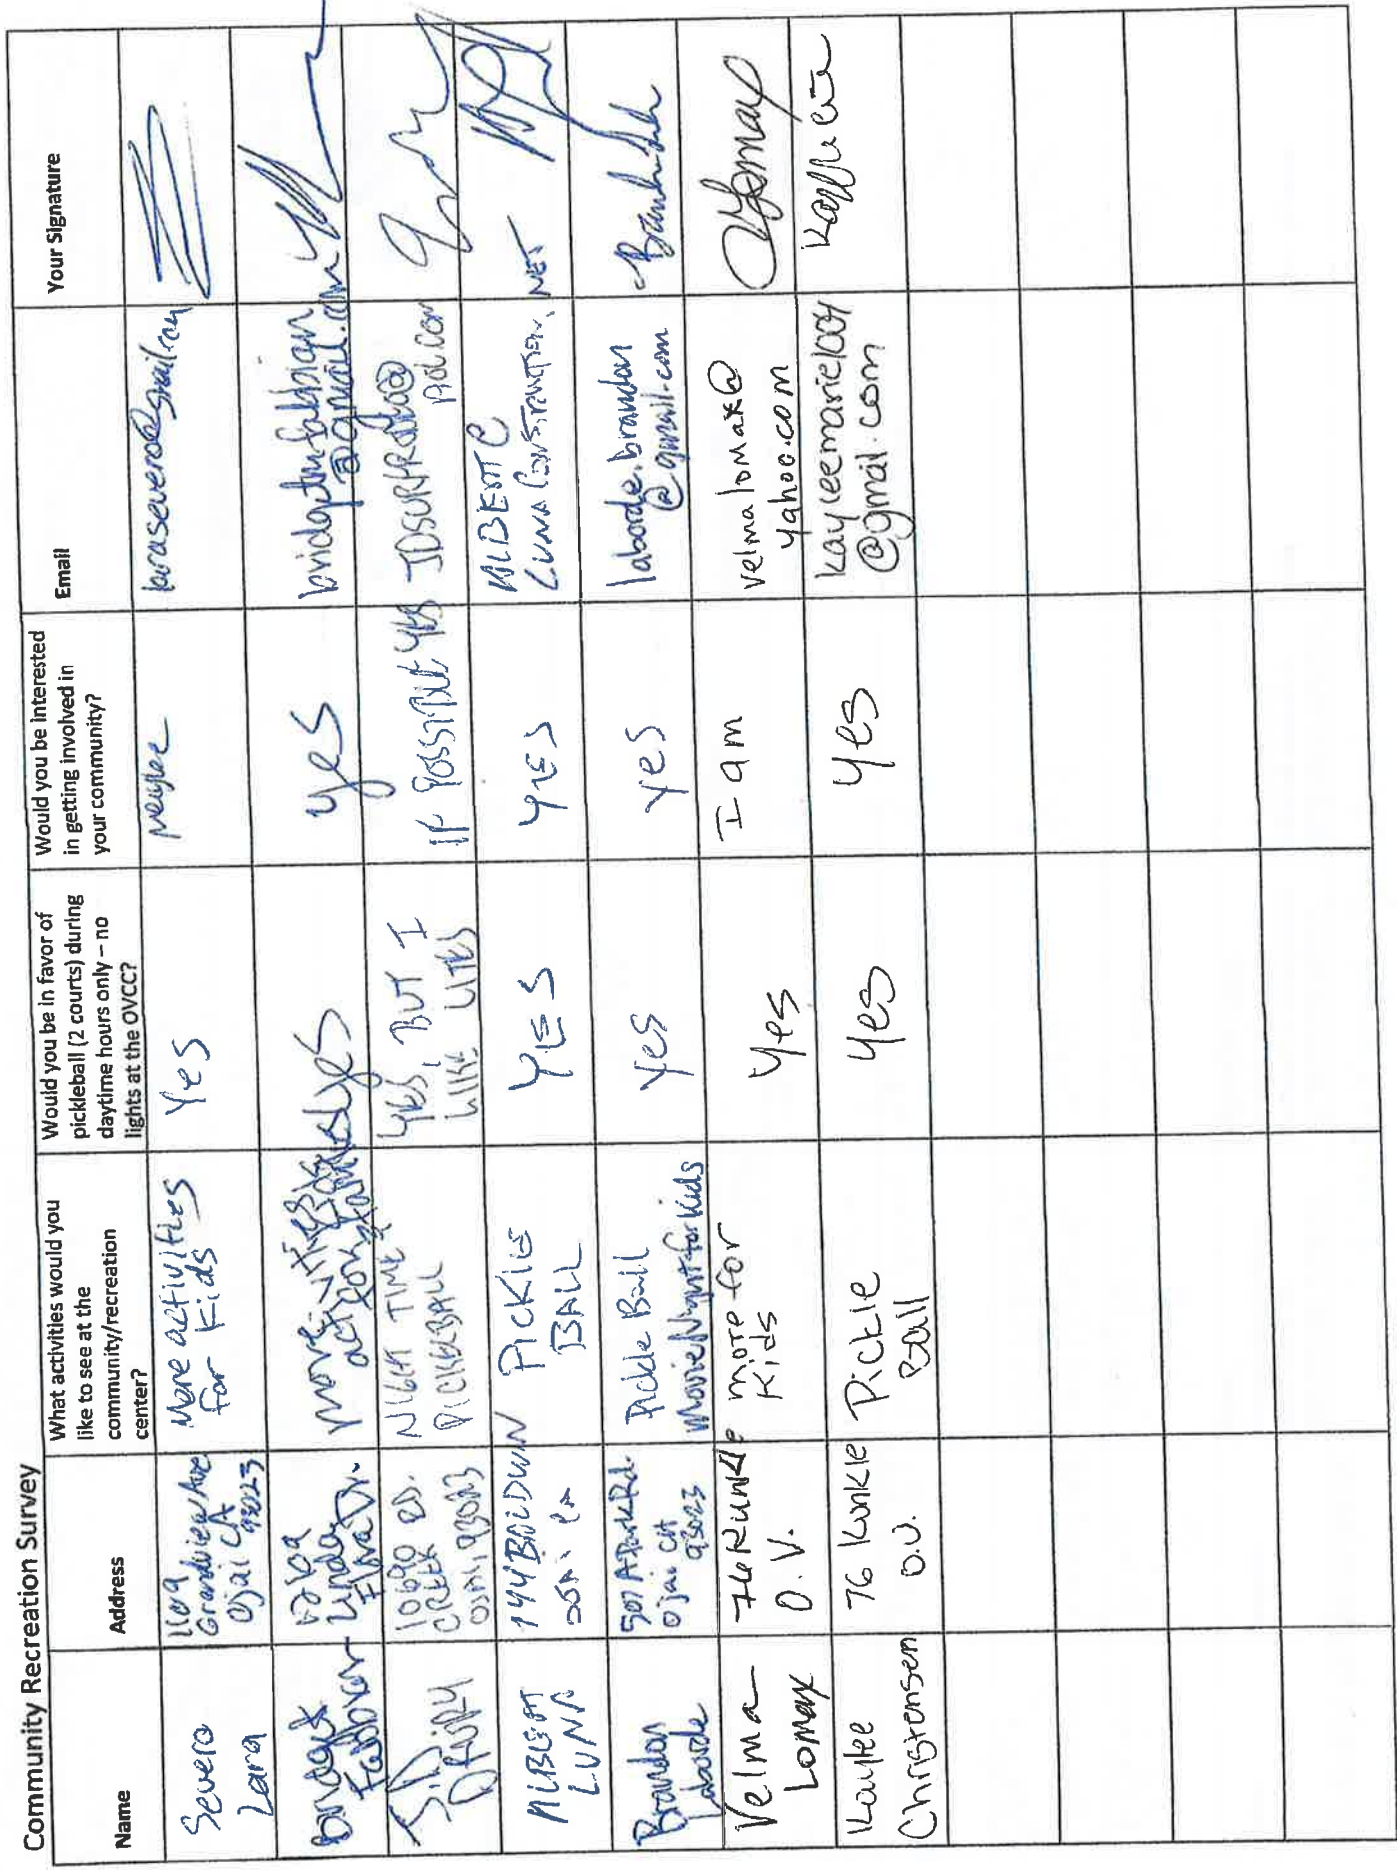 Community Recreation Survey
Name
Address
What activities would you
like to see at the
community/recreation
center?
Would you be in favor of
pickleball (2 courts) during
daytime hours only – no
lights at the OVCC?
Would you be interested
in getting involved in
your community?
Email
Your Signature
Severo
Lara
1169
Grandview Ave
Ojai CA
93023
More activities
for Kids
Yes
Bridget
Linda
Flora Dr.
more
activities
yes
yes
@gmail.com
JD
DRURY
10690
CREEK RD.
OJAI, 93023
NIGHT TIME
PICKLEBALL
YES, BUT I
LIKE LITES
IF POSSIBLE YES
aol.com
ALBERT
LUNA
144 BALDWIN
OJAI CA
PICKLE
BALL
YES
YES
ALBERT@
LUNA CONSTRUCTION.
NET
Brandon
Laborde
507 A Park Rd.
Ojai CA
93023
Pickle Ball
Movie Night for Kids
Yes
yes
laborde.brandon
@gmail.com
Velma
Lomax
76 Kunkle
O.V.
more for
Kids
Yes
I am
velmalomax@
yahoo.com
Kaylee
Christensen
76 Kunkle
O.V.
Pickle
Ball
Yes
Yes
kayleemarie1004
@gmail.com